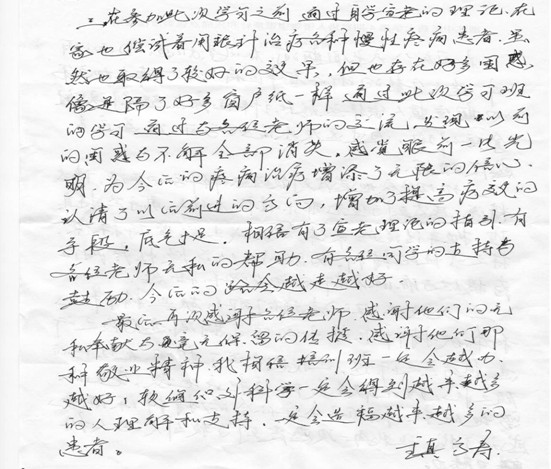 三、在参加此次学习之前 通过自学宣老的理论,在
家也尝试着用银针治疗各种慢性疼痛患者,虽
然也取得了较好的效果,但也存在好多困惑
像是隔了好多窗户纸一样 通过此次学习班
的学习 通过与各位老师的交流,发现以前
的困惑与不解全部消失,感觉眼前一片光
明,为今后的疼痛治疗增添了无限的信心,
认清了以后前进的方向,增加了提高疗效的
手段,底气十足,相信有了宣老理论的指引,有
各位老师无私的帮助,有各位同学的支持与
鼓励,今后的路会越走越好。
最后再次感谢各位老师,感谢他们的无
私奉献与毫无保留的传授,感谢他们那
种敬业精神 我相信培训班一定会越办
越好,软组织外科学一定会得到越来越多
的人理解和支持,一定会造福越来越多的
患者。